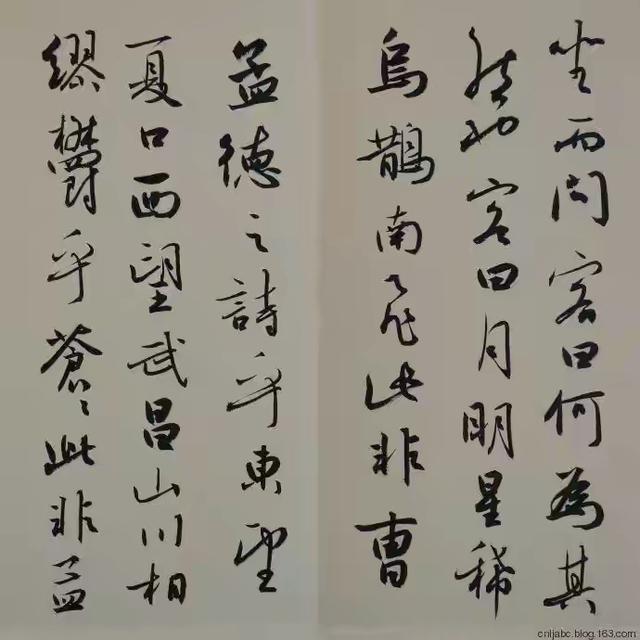 坐而問客曰何為其
然也客曰月明星稀
烏鵲南飛此非曹
孟德之詩乎東望
夏口西望武昌山川相
繆鬱乎蒼々此非孟
cnljabc.blog.163.com